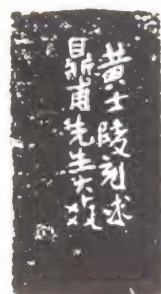 黄士陵刻求
鼎甫先生大疋